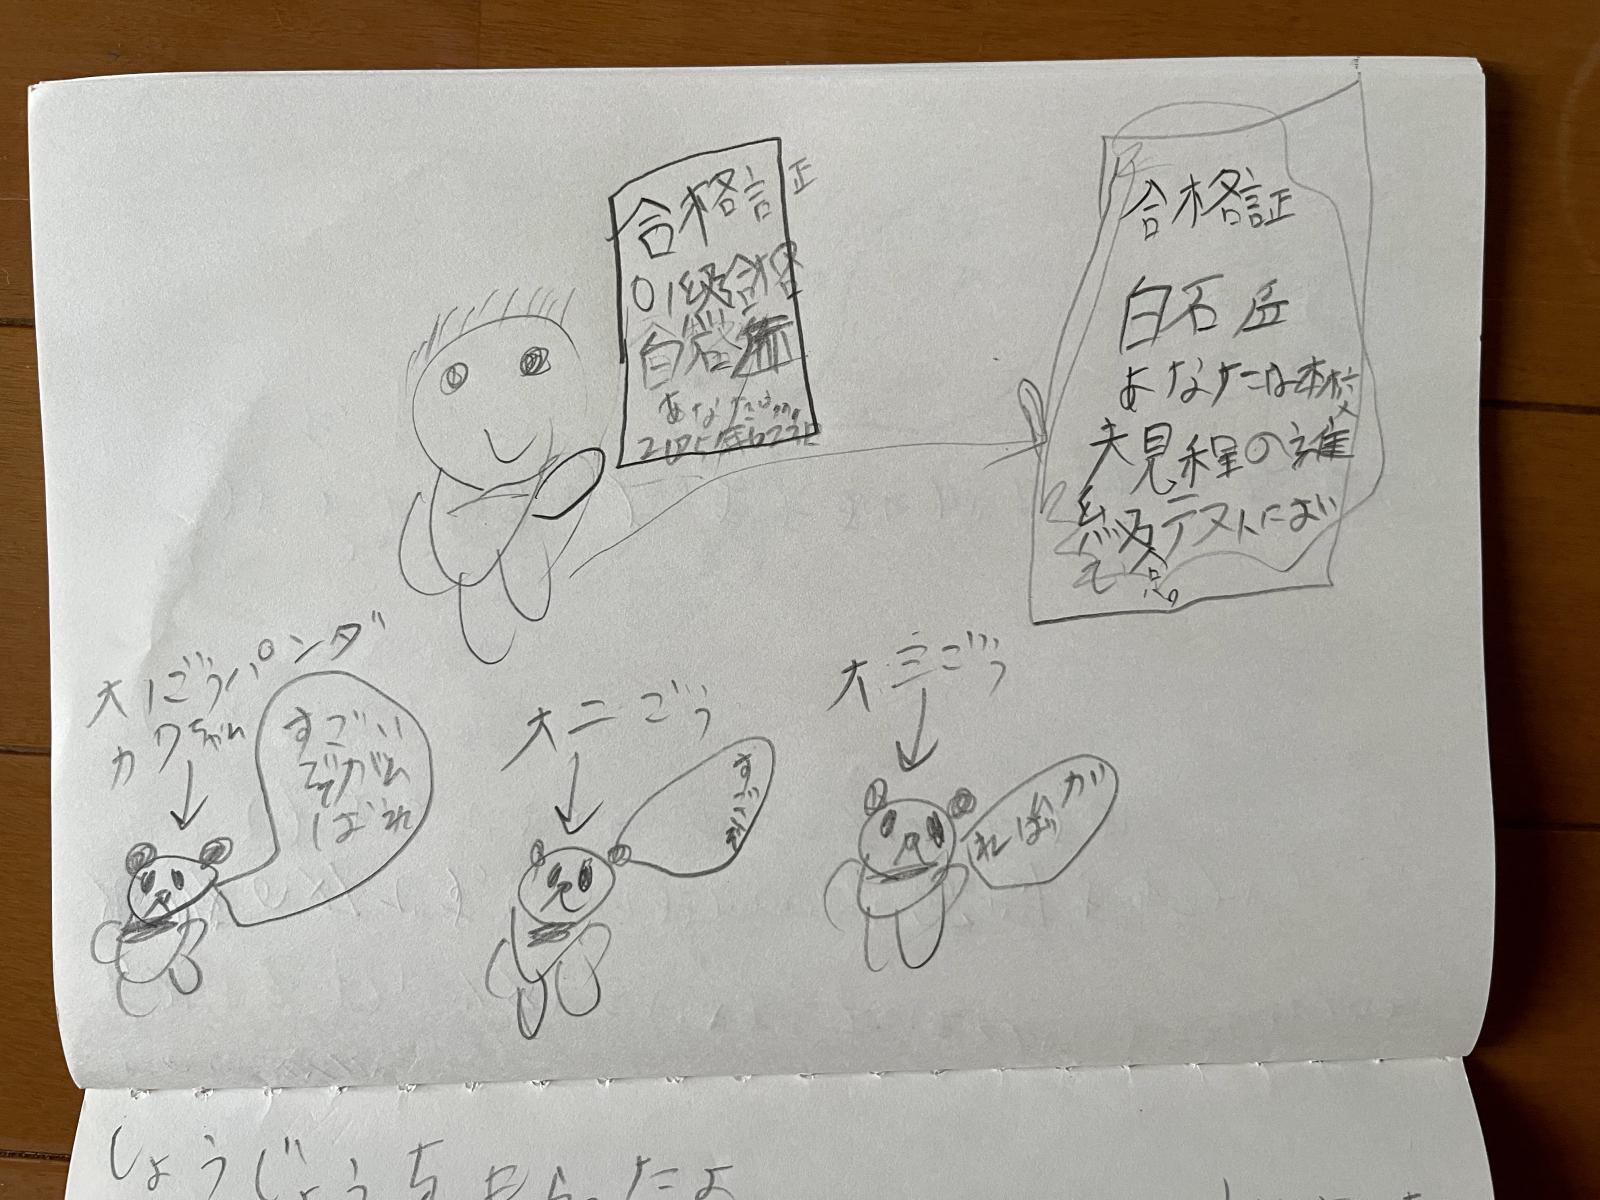 合格証
01級合格
白石
あなたは
合格証
白石 丘
あなたは本校
規程の進
級テストにおい
て合
大1ごうパンダ
カワちゃん
すごい
ぞがん
ばれ
大二ごう
すごい
大三ごう
がん
ばれ
しょうじょうをもらったよ